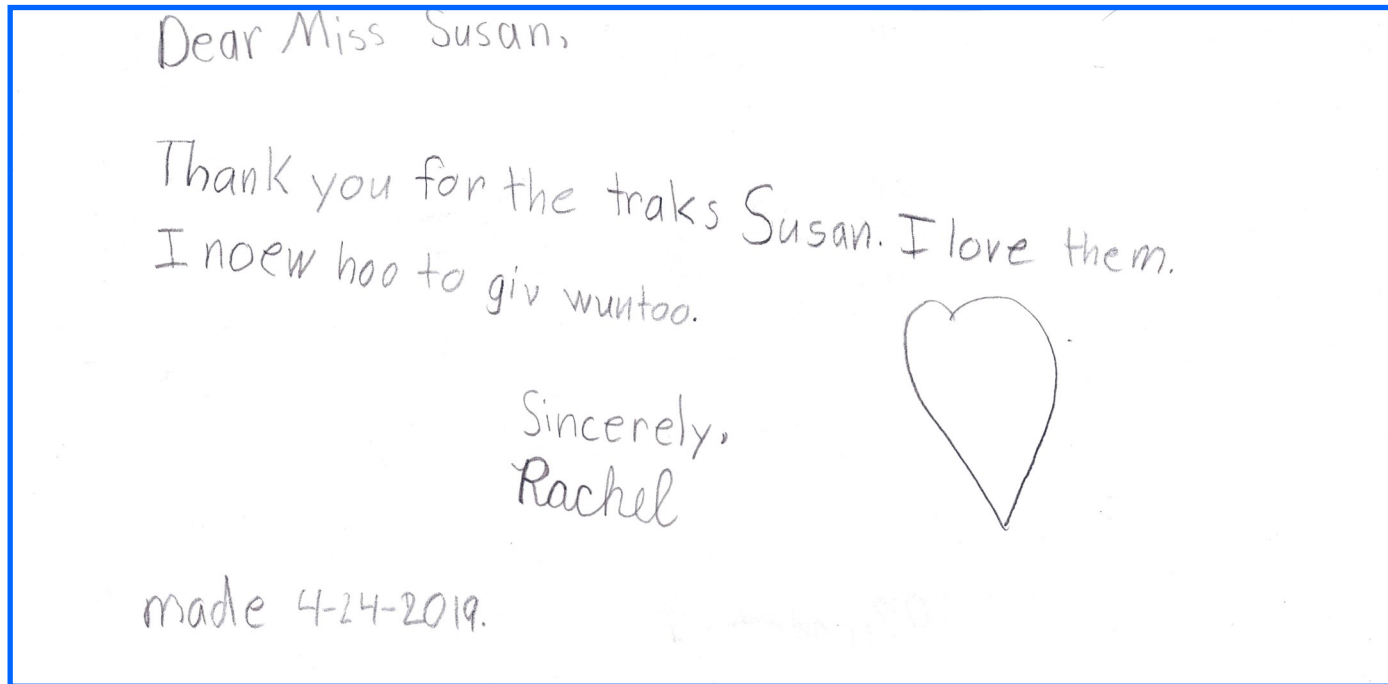 Dear Miss Susan,
Thank you for the traks Susan. I love them.
I noew hoo to giv wuntoo.
Sincerely,
Rachel
made 4-24-2019.